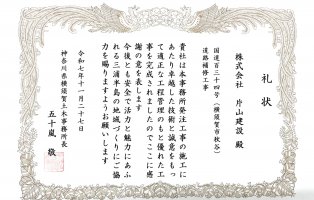 礼状
株式会社 片山建設 殿
国道百三十四号（横須賀市秋谷）
道路補修工事
貴社は本事務所発注工事の施工に
あたり卓越した技術と誠意をもっ
て適正な工程管理のもと優れた工
事を完成されましたのでここに感
謝の意を表します
今後とも安全で活力と魅力にあふ
れる三浦半島の地域づくりにご協
力を賜りますようお願いします
令和七年十一月二十七日
神奈川県横須賀土木事務所長
五十嵐 敬